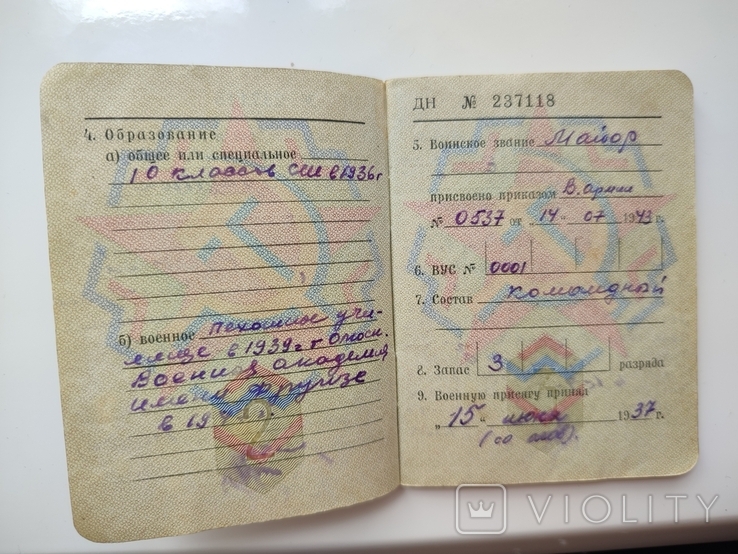 4. Образование
а) общее или специальное
10 классов СШ в 1936 г
б) военное пехотное учи-
лище в 1939 г г
Военная академия
имени Фрунзе
в 19
ДН № 237118
5. Воинское звание Майор
присвоено приказом В. армии
№ 0537 от „14“ 07 1943 г.
6. ВУС № 0001
7. Состав командный
8. Запас 3 разряда
9. Военную присягу принял
„15“ июня 1937 г.
VIOLITY